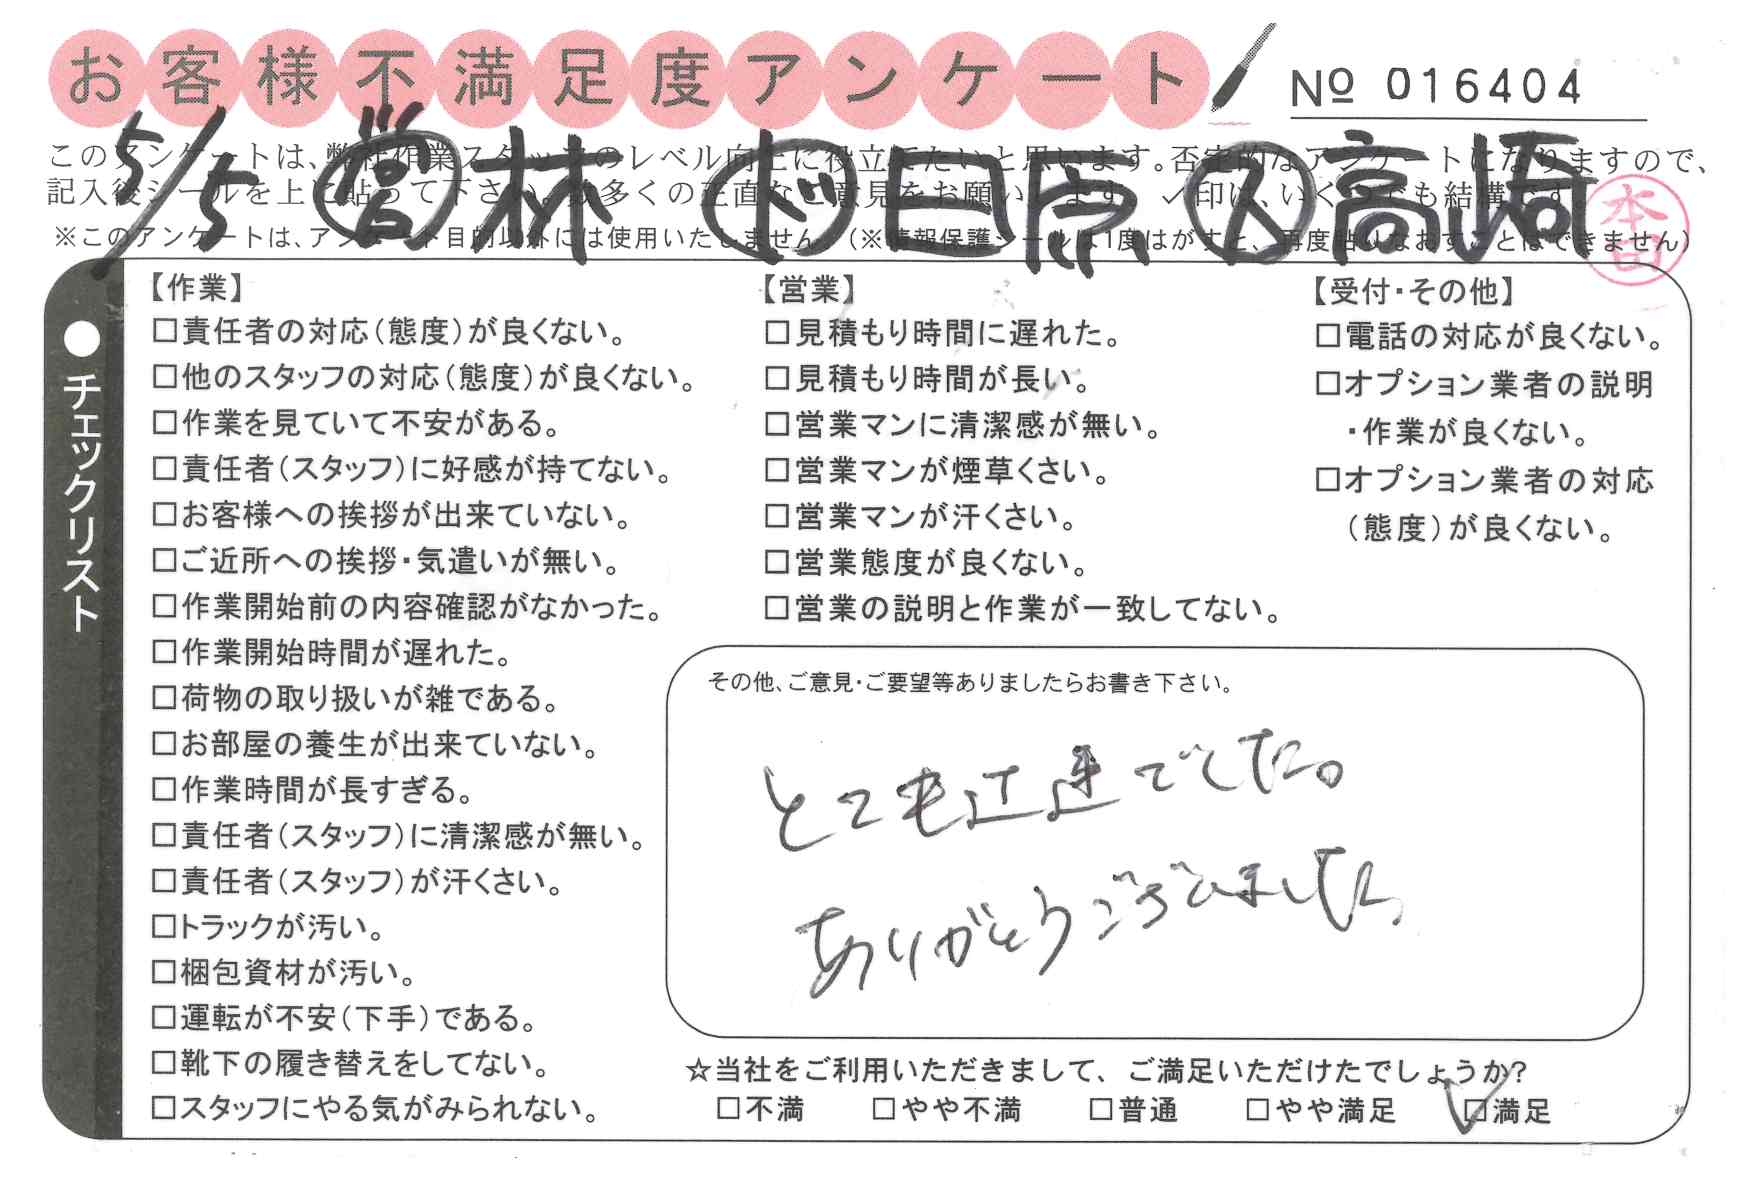 お客様不満足度アンケート
No 016404
5/5 営 林 ド 日原 人 高崎
このアンケートは、弊社作業スタッフのレベル向上に役立てたいと思います。否定的なアンケートになりますので、
記入後シールを上に貼って下さい。数多くの正直なご意見をお願いします。✓印は、いくつでも結構です。
※このアンケートは、アンケート目的以外には使用いたしません。(※情報保護シールは1度はがすと、再度貼りなおすことはできません)
本田
●チェックリスト
【作業】
□責任者の対応(態度)が良くない。
□他のスタッフの対応(態度)が良くない。
□作業を見ていて不安がある。
□責任者(スタッフ)に好感が持てない。
□お客様への挨拶が出来ていない。
□ご近所への挨拶・気遣いが無い。
□作業開始前の内容確認がなかった。
□作業開始時間が遅れた。
□荷物の取り扱いが雑である。
□お部屋の養生が出来ていない。
□作業時間が長すぎる。
□責任者(スタッフ)に清潔感が無い。
□責任者(スタッフ)が汗くさい。
□トラックが汚い。
□梱包資材が汚い。
□運転が不安(下手)である。
□靴下の履き替えをしてない。
□スタッフにやる気がみられない。
【営業】
□見積もり時間に遅れた。
□見積もり時間が長い。
□営業マンに清潔感が無い。
□営業マンが煙草くさい。
□営業マンが汗くさい。
□営業態度が良くない。
□営業の説明と作業が一致してない。
【受付・その他】
□電話の対応が良くない。
□オプション業者の説明
・作業が良くない。
□オプション業者の対応
(態度)が良くない。
その他、ご意見・ご要望等ありましたらお書き下さい。
とても迅速でした。
ありがとうございました
☆当社をご利用いただきまして、ご満足いただけたでしょうか?
□不満 □やや不満 □普通 □やや満足 ☑満足